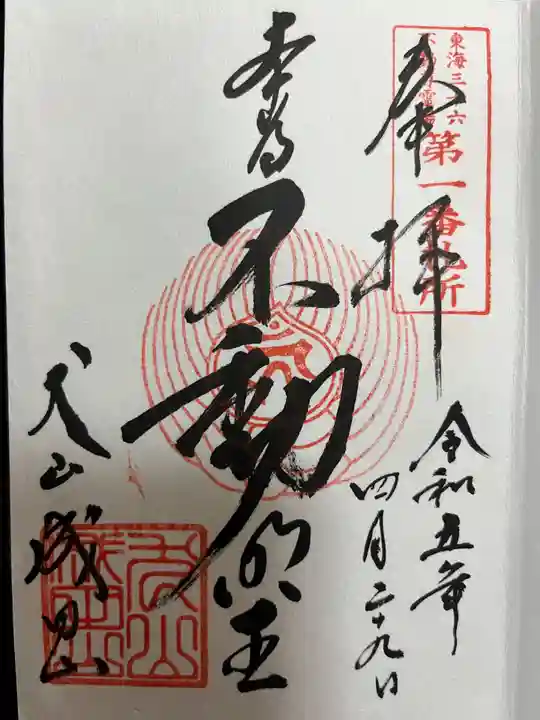 東海三十六
不動尊霊場
第一番札所
奉拝
令和五年
四月二十九日
本尊
不動明王
犬山成田山